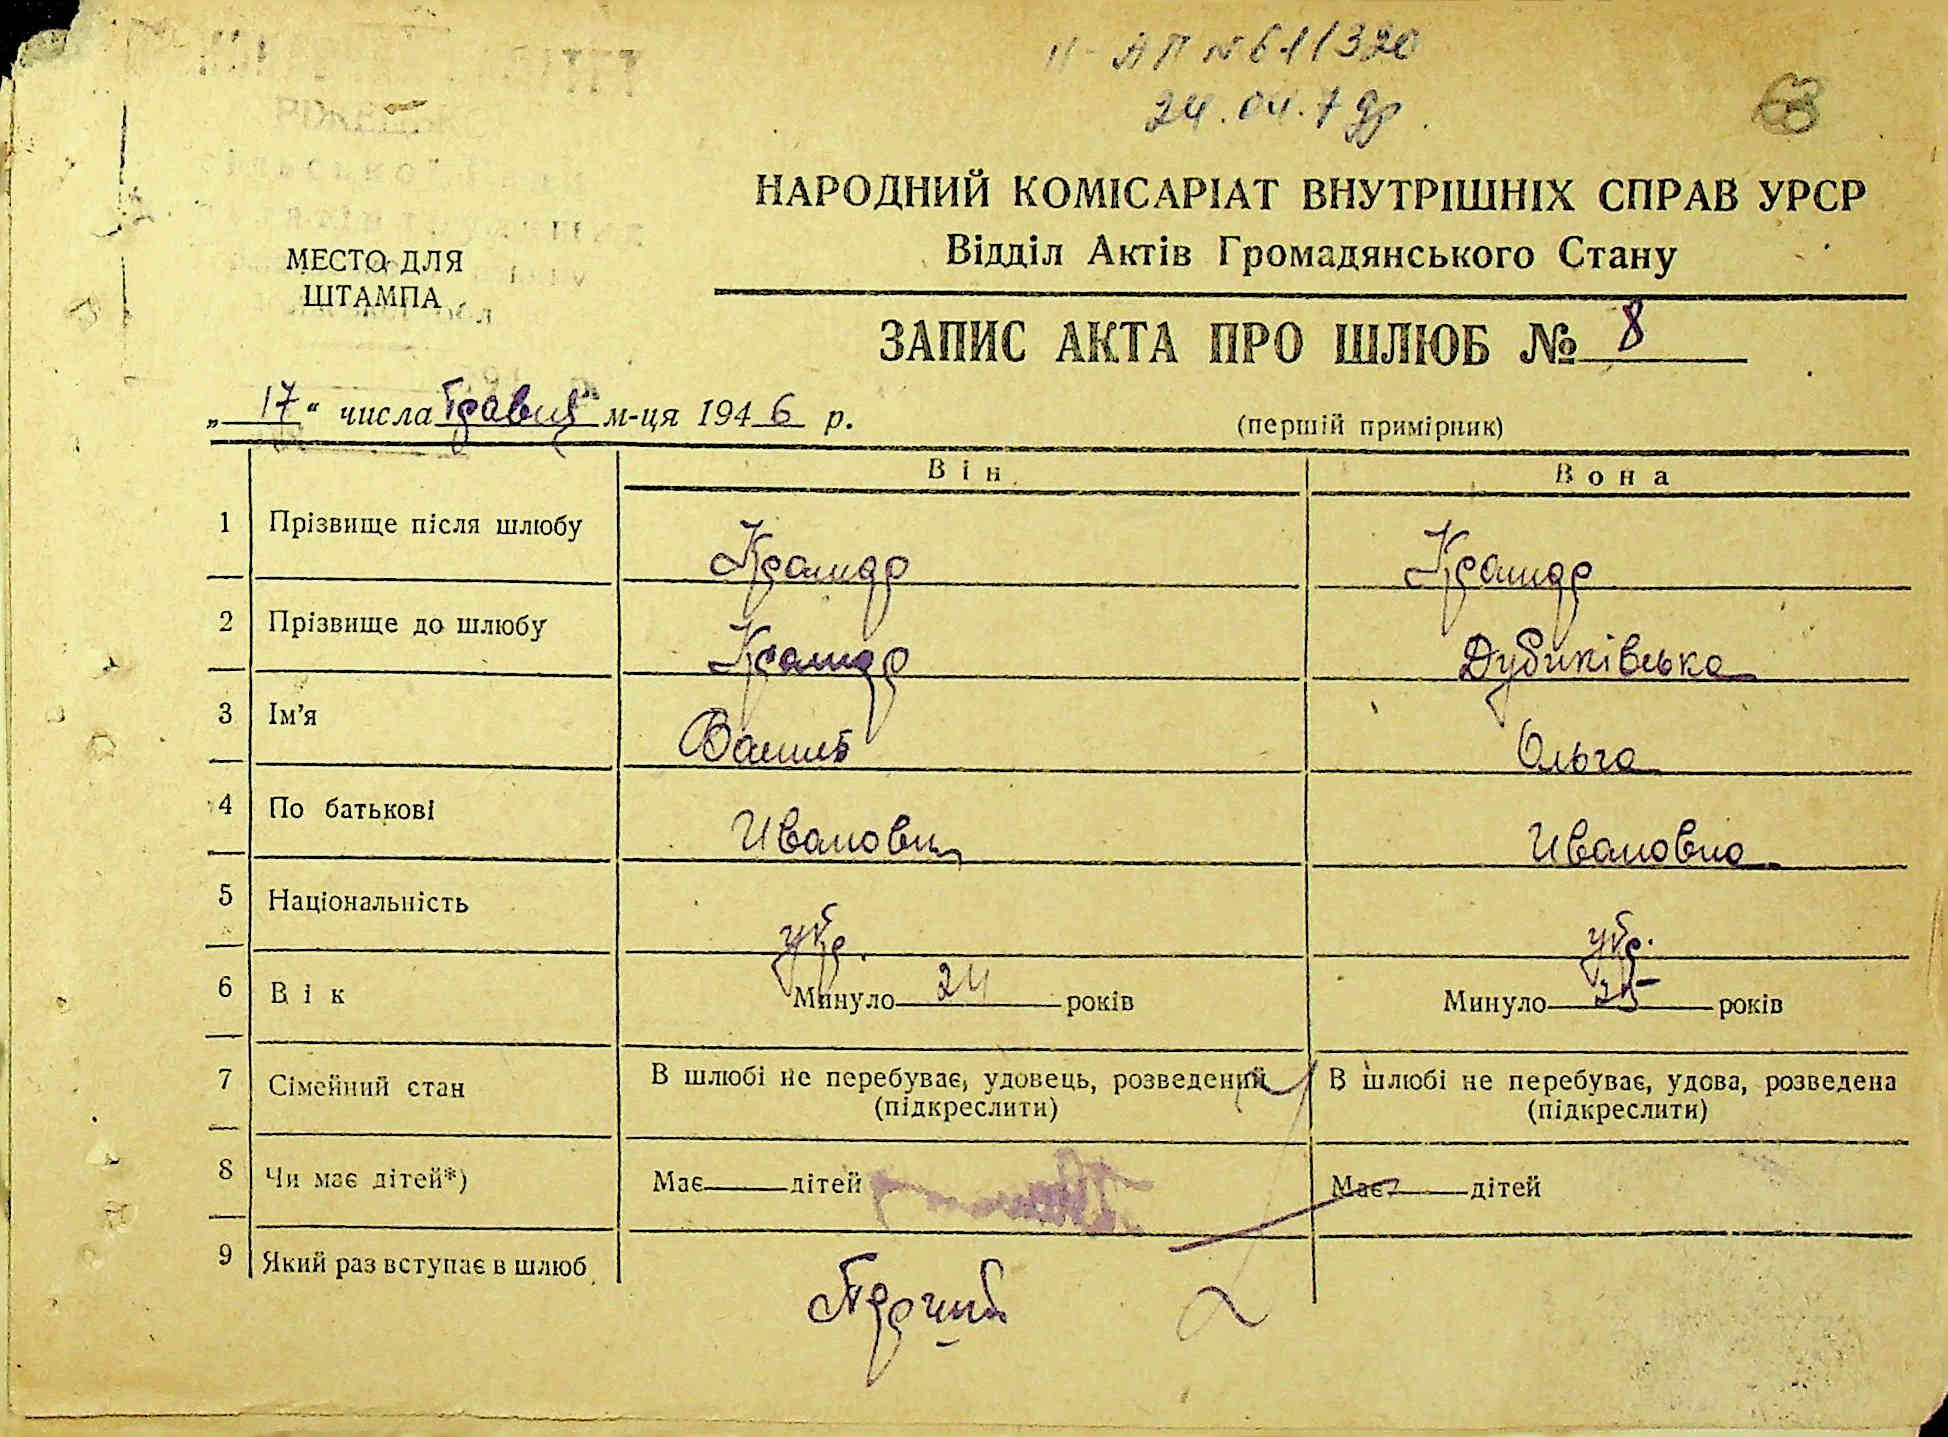 24.04.7
63
НАРОДНИЙ КОМІСАРІАТ ВНУТРІШНІХ СПРАВ УРСР
Відділ Актів Громадянського Стану
МЕСТО ДЛЯ
ШТАМПА
ЗАПИС АКТА ПРО ШЛЮБ № 8
„17“ числа Травця м-ця 1946 р.
(першій примірник)
Він Вона
1 Прізвище після шлюбу
2 Прізвище до шлюбу
3 Ім'я Ольга
4 По батькові Иванович Ивановна
5 Національність укр. укр.
6 Вік Минуло 24 років Минуло 25 років
7 Сімейний стан В шлюбі не перебуває, удовець, розведений В шлюбі не перебуває, удова, розведена
(підкреслити) (підкреслити)
8 Чи має дітей*) Має дітей Має дітей
9 Який раз вступає в шлюб